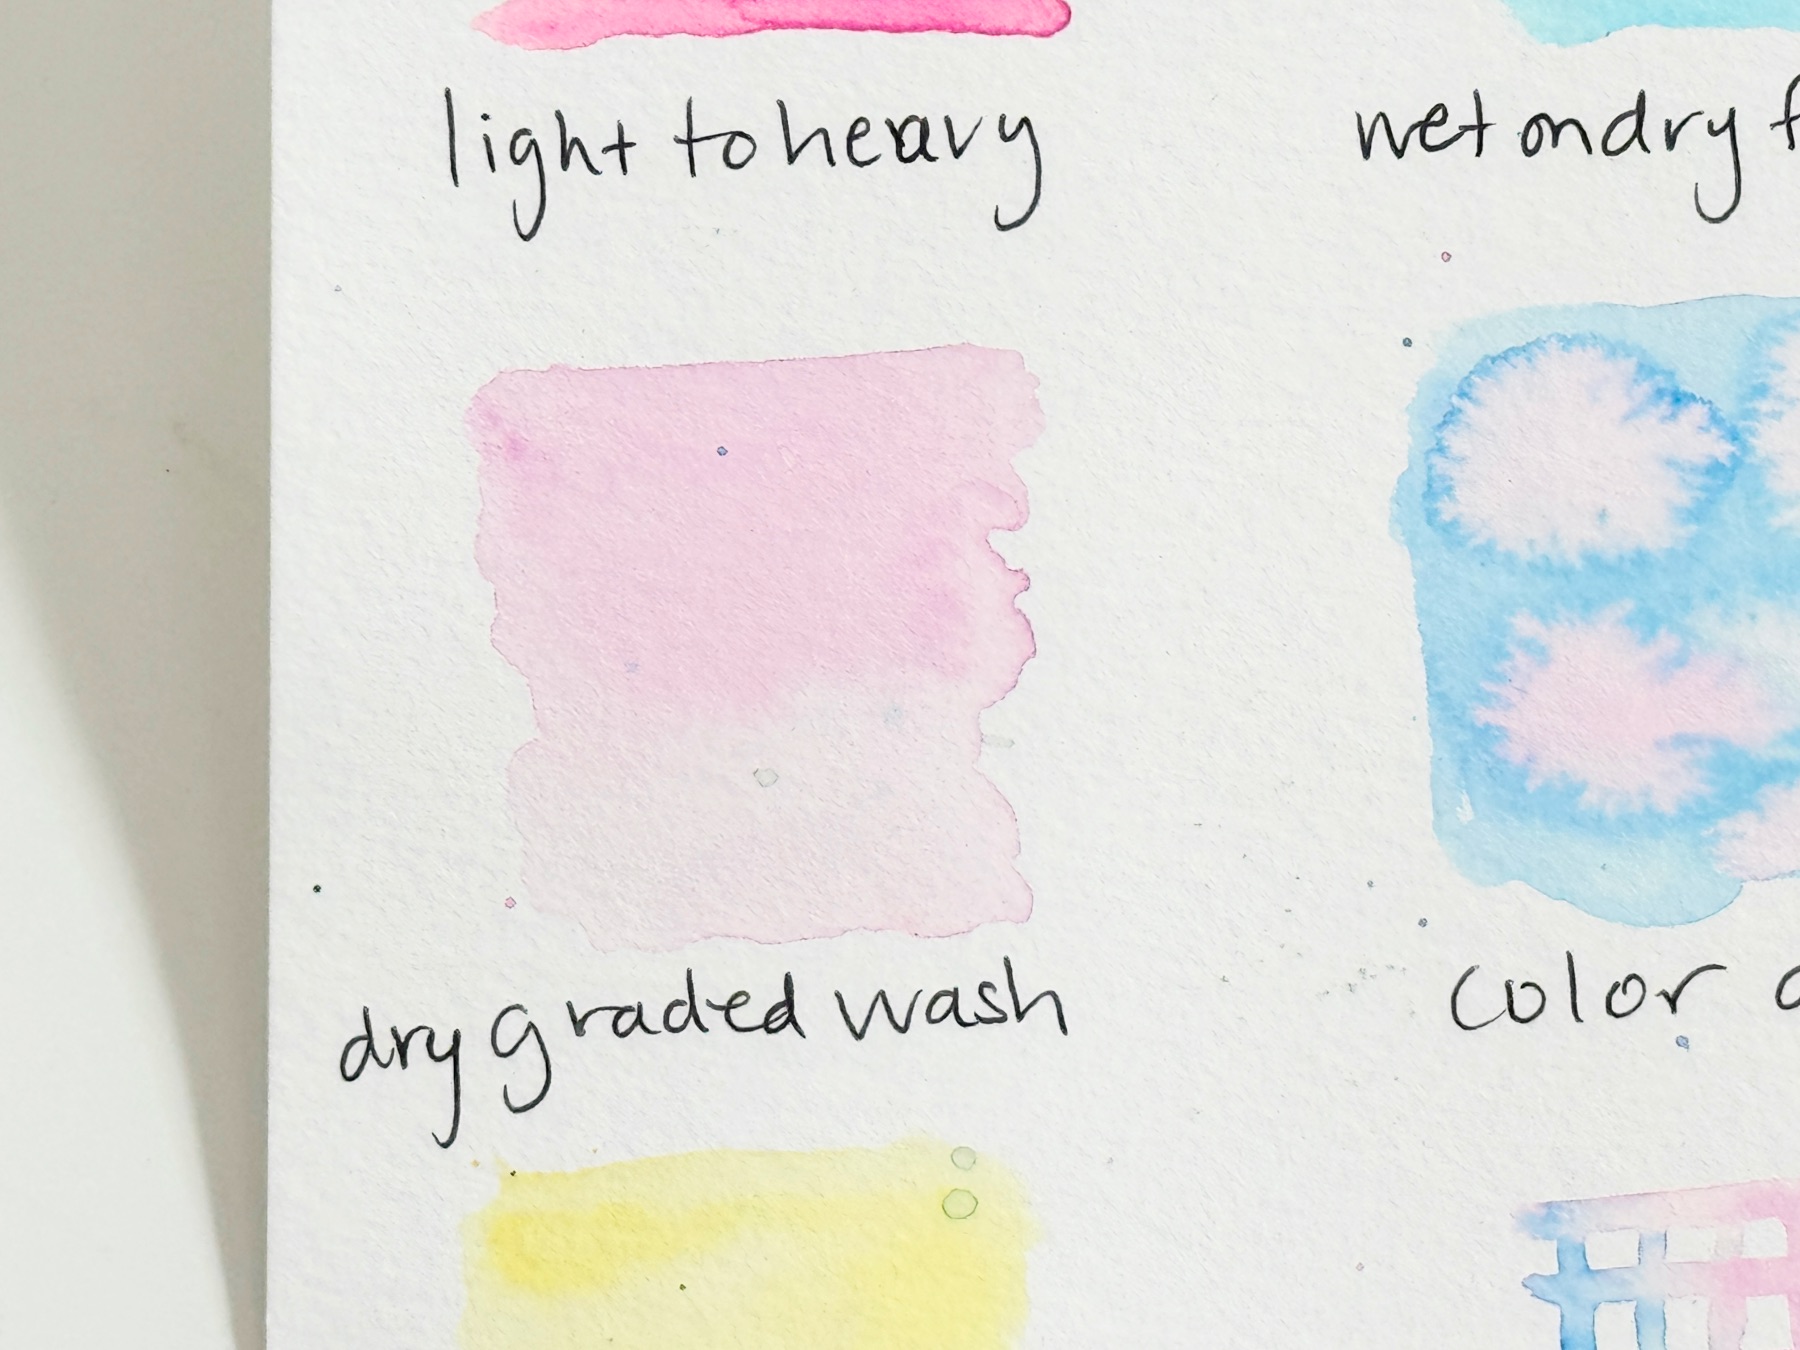 light to heavy
wet on dry
dry graded wash
color